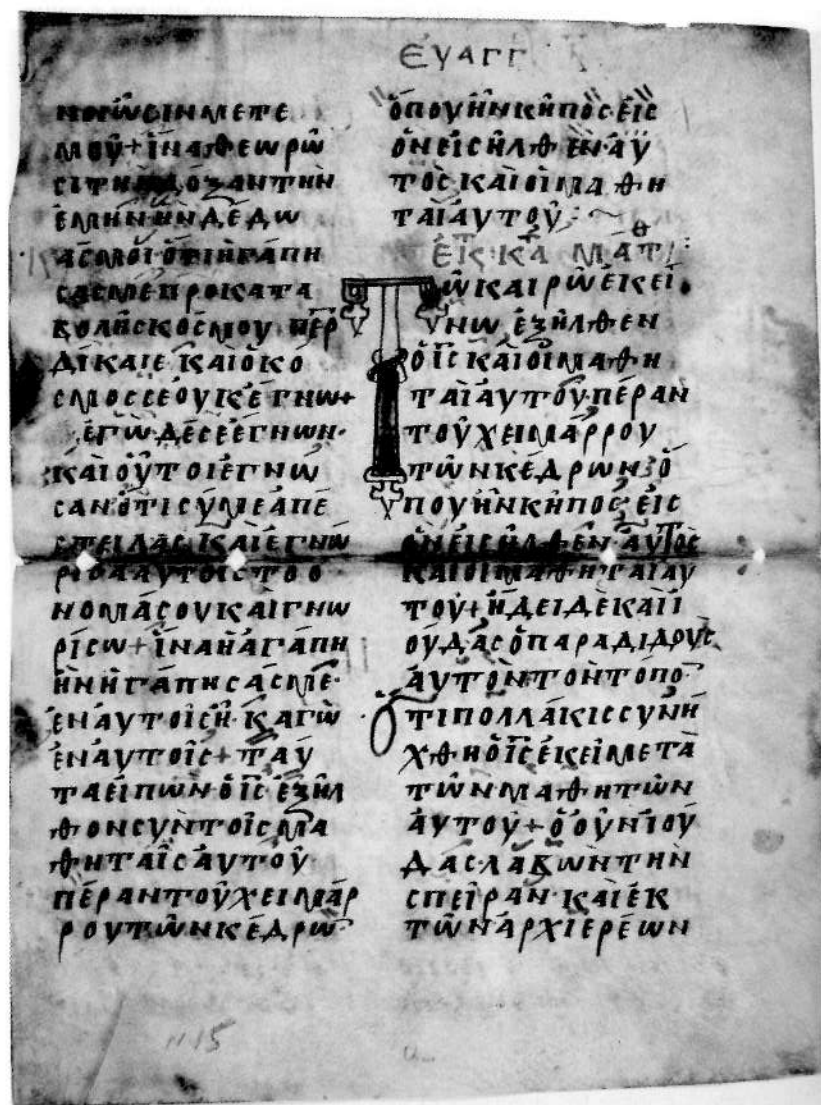 ΕΥΑΓΓ
ΝΟΙΩϹΙΝΜΕΤΕ
ΜΟΥ+ΙΝΑΘΕΩΡΩ
ϹΙΤΗΝΔΟΞΑΝΤΗΝ
ΕΜΗΝΗΝΔΕΔΩ
ΑϹΜΟΙΟΤΙΗΓΑΠΗ
ϹΑϹΜΕΠΡΟΚΑΤΑ
ΒΟΛΗϹΚΟϹΜΟΥ ΠΕΡ
ΔΙΚΑΙΕ ΚΑΙΟΚΟ
ϹΜΟϹϹΕΟΥΚΕΓΝΩ+
ΕΓΩ·ΔΕϹΕΕΓΝΩΝ·
ΚΑΙΟΥΤΟΙΕΓΝΩ
ϹΑΝΟΤΙϹΥΜΕΑΠΕ
ϹΤΕΙΛΑϹ·ΚΑΙΕΓΝΩ
ΡΙϹΑΑΥΤΟΙϹΤΟΟ
ΝΟΜΑϹΟΥΚΑΙΓΝΩ
ΡΙϹΩ+ΙΝΑΗΑΓΑΠΗ
ΗΝΗΓΑΠΗϹΑϹΜΕ·
ΕΝΑΥΤΟΙϹΗ·ΚΑΓΩ
ΕΝΑΥΤΟΙϹ+ΤΑΥ
ΤΑΕΙΠΩΝ·ΟΙϹ·ΕΞΗΛ
ΘΟΝϹΥΝΤΟΙϹΜΑ
ΘΗΤΑΙϹΑΥΤΟΥ·
ΠΕΡΑΝΤΟΥΧΕΙΜΑΡ
ΡΟΥΤΩΝΚΕΔΡΩ
ΟΠΟΥΗΝΚΗΠΟϹ·ΕΙϹ
ΟΝΕΙϹΗΛΘΕΝ·ΑΥ
ΤΟϹΚΑΙΟΙΜΑΘΗ
ΤΑΙΑΥΤΟΥ:~
ΕΙϹ·ΚΑ ΜΑΤΘ
ΤΩΚΑΙΡΩΕΚΕΙ
ΝΩ ΕΞΗΛΘΕΝ
ΟΙϹΚΑΙΟΙΜΑΘΗ
ΤΑΙΑΥΤΟΥ·ΠΕΡΑΝ
ΤΟΥΧΕΙΜΑΡΡΟΥ
ΤΩΝΚΕΔΡΩΝ·Ο
ΠΟΥΗΝΚΗΠΟϹ·ΕΙϹ
ΟΝΕΙϹΗΛΘΕΝ·ΑΥΤΟϹ
ΚΑΙΟΙΜΑΘΗΤΑΙΑΥ
ΤΟΥ+ΗΔΕΙΔΕΚΑΙΙ
ΟΥΔΑϹΟΠΑΡΑΔΙΔΟΥϹ
ΑΥΤΟΝΤΟΝΤΟΠΟ
ΟΤΙΠΟΛΛΑΚΙϹϹΥΝΗ
ΧΘΗΟΙϹΕΚΕΙΜΕΤΑ
ΤΩΝΜΑΘΗΤΩΝ
ΑΥΤΟΥ+ΟΟΥΝΙΟΥ
ΔΑϹ·ΛΑΒΩΝΤΗΝ
ϹΠΕΙΡΑΝ·ΚΑΙΕΚ
ΤΩΝΑΡΧΙΕΡΕΩΝ